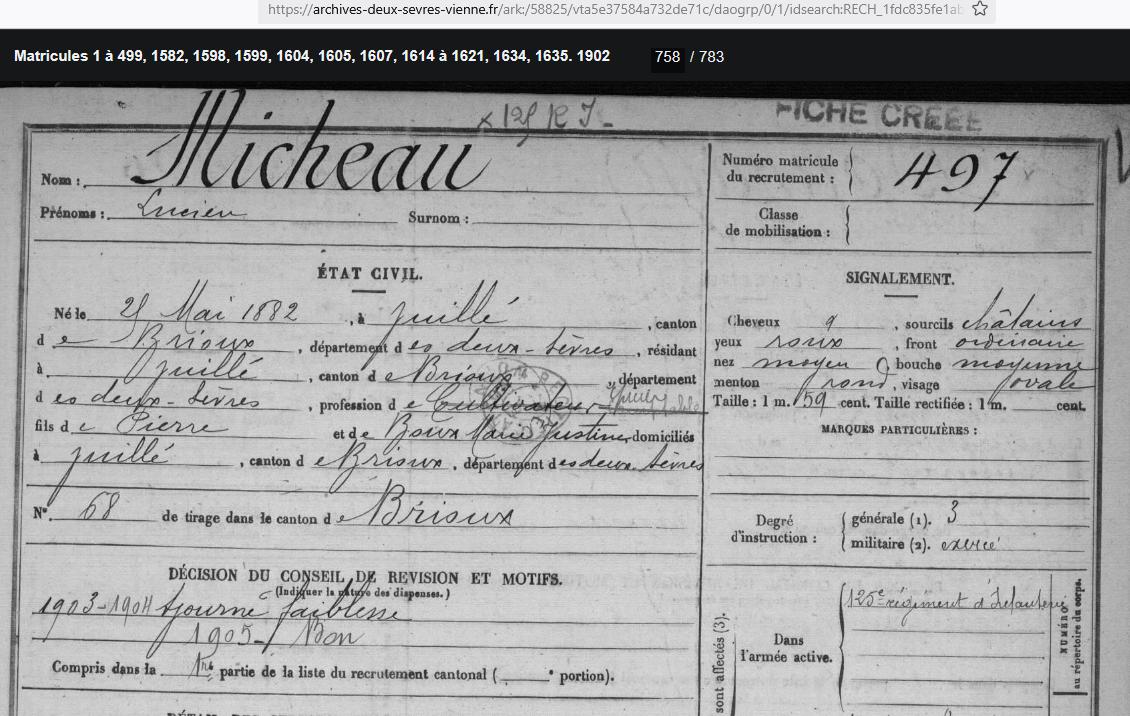 https://archives-deux-sevres-vienne.fr/ark:/58825/vta5e37584a732de71c/daogrp/0/1/idsearch:RECH_1fdc835fe1ab
Matricules 1 à 499, 1582, 1598, 1599, 1604, 1605, 1607, 1614 à 1621, 1634, 1635. 1902 758 / 783
x 125 R I - FICHE CRÉÉE
Nom : Micheau
Prénoms : Lucien Surnom :
Numéro matricule du recrutement : 497
Classe de mobilisation :
ÉTAT CIVIL.
Né le Mai 1882, à Juillé, canton
de Brioux, département des deux-Sèvres, résidant
à Juillé, canton de Brioux, département
des deux-Sèvres, profession de Cultivateur
fils de Pierre et de Marie Justine, domiciliés
à Juillé, canton de Brioux, département des deux Sèvres
N° 68 de tirage dans le canton de Brioux
DÉCISION DU CONSEIL DE REVISION ET MOTIFS.
(Indiquer la nature des dispenses.)
1903-1904 Ajourné faiblesse
1905- Bon
Compris dans la 1re partie de la liste du recrutement cantonal ( e portion).
SIGNALEMENT.
Cheveux, sourcils châtains
yeux roux, front ordinaire
nez moyen, bouche moyenne
menton rond, visage ovale
Taille : 1 m. 59 cent. Taille rectifiée : 1 m. cent.
MARQUES PARTICULIÈRES :
Degré d'instruction :
générale (1). 3
militaire (2). exercé
sont affectés (3).
Dans l'armée active.
125e régiment d'Infanterie
NUMÉRO au répertoire du corps.